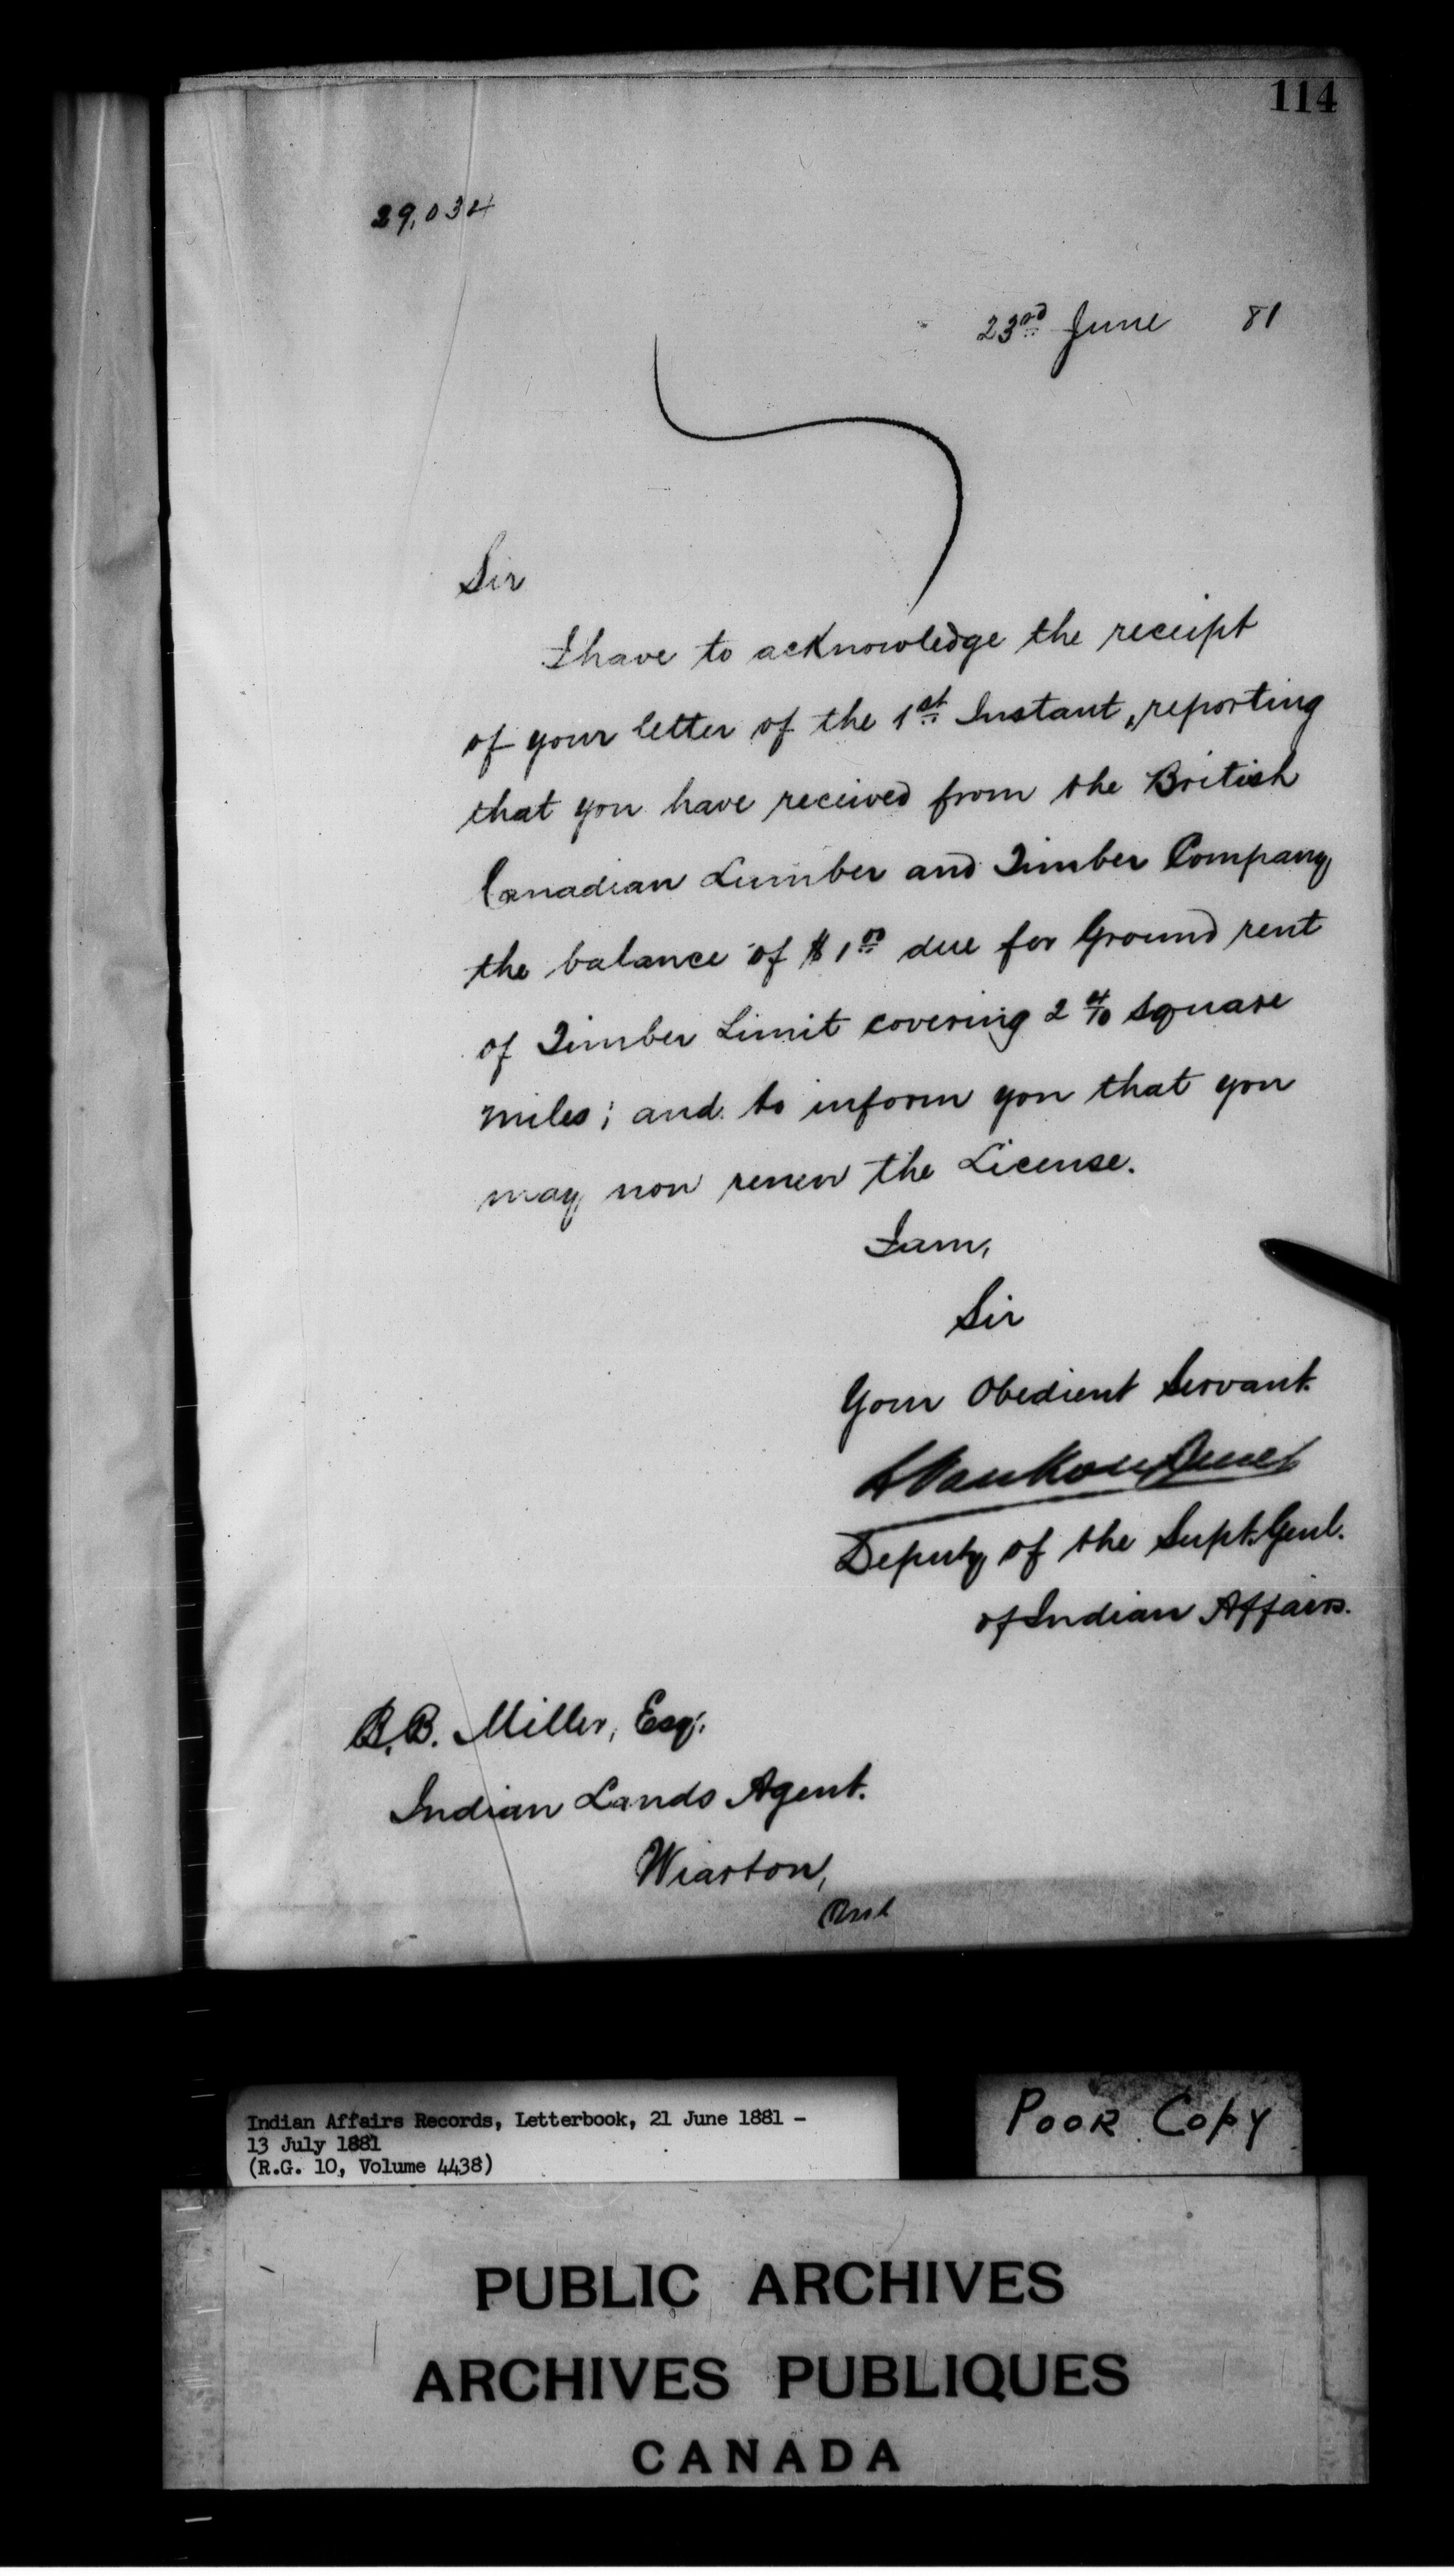 114
29,034
23rd June 81
Sir
I have to acknowledge the receipt
of your letter of the 1st Instant, reporting
that you have received from the British
Canadian Lumber and Timber Company
the balance of $1.00 due for Ground rent
of Timber Limit covering 2 4/10 square
miles; and to inform you that you
may now renew the License.
I am,
Sir
Your Obedient Servant.
L VanKoughnet
Deputy of the Supt. Genl.
of Indian Affairs.
B.B. Miller, Esq.
Indian Lands Agent.
Wiarton,
Ont
Indian Affairs Records, Letterbook, 21 June 1881 -
13 July 1881
(R.G. 10, Volume 4438)
POOR COPY
PUBLIC ARCHIVES
ARCHIVES PUBLIQUES
CANADA